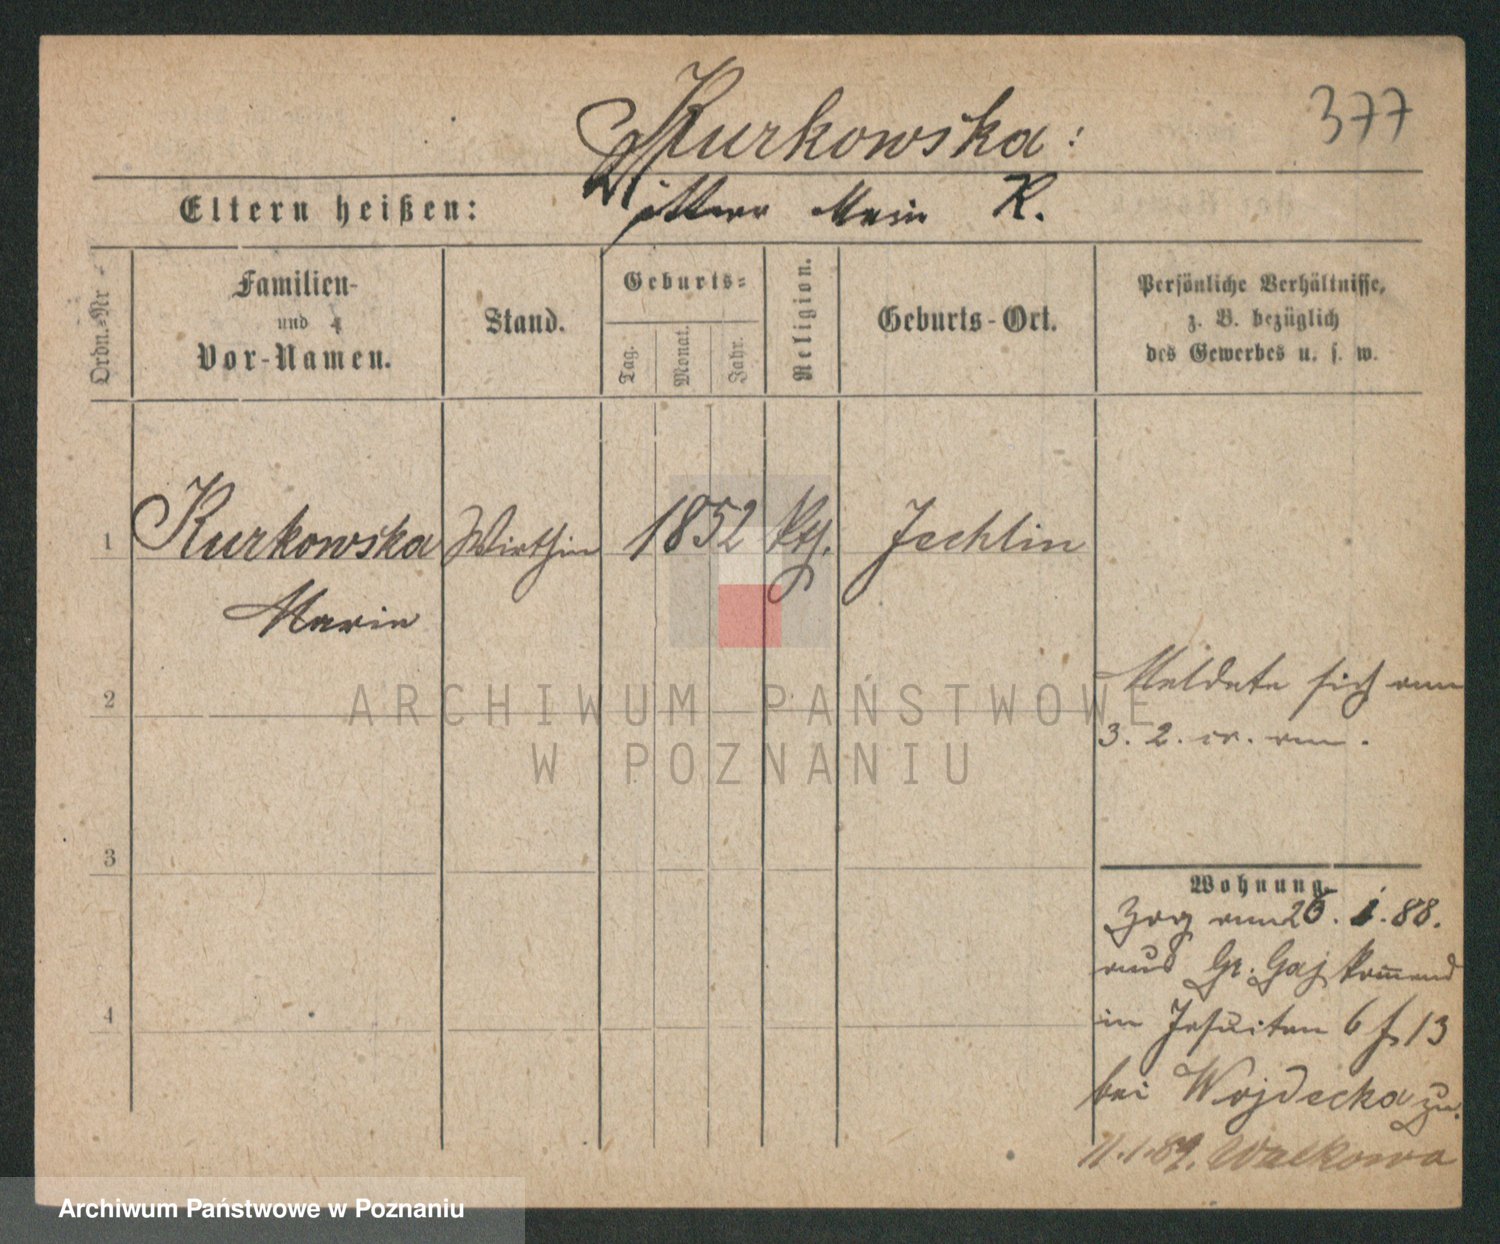 Kurkowska:
377
Eltern heißen:
K.
Ordn.-Nr
Familien-
und
Vor-Namen.
Stand.
Geburts-
Tag.
Monat.
Jahr.
Religion.
Geburts-Ort.
Persönliche Verhältnisse,
z. B. bezüglich
des Gewerbes u. s. w.
1
Kurkowska
Wirthin
1852
kth.
Jechlin
Marie
Meldete sich am
2
3. 2. cr. an.
ARCHIWUM PAŃSTWOWE
W POZNANIU
3
Wohnung.
Zog am 26. 1. 88.
aus Gr. Gaj kommend
4
in Jesuiten 6 13
bei Wojdecka zu.
11.1.89. Walkowa
Archiwum Państwowe w Poznaniu